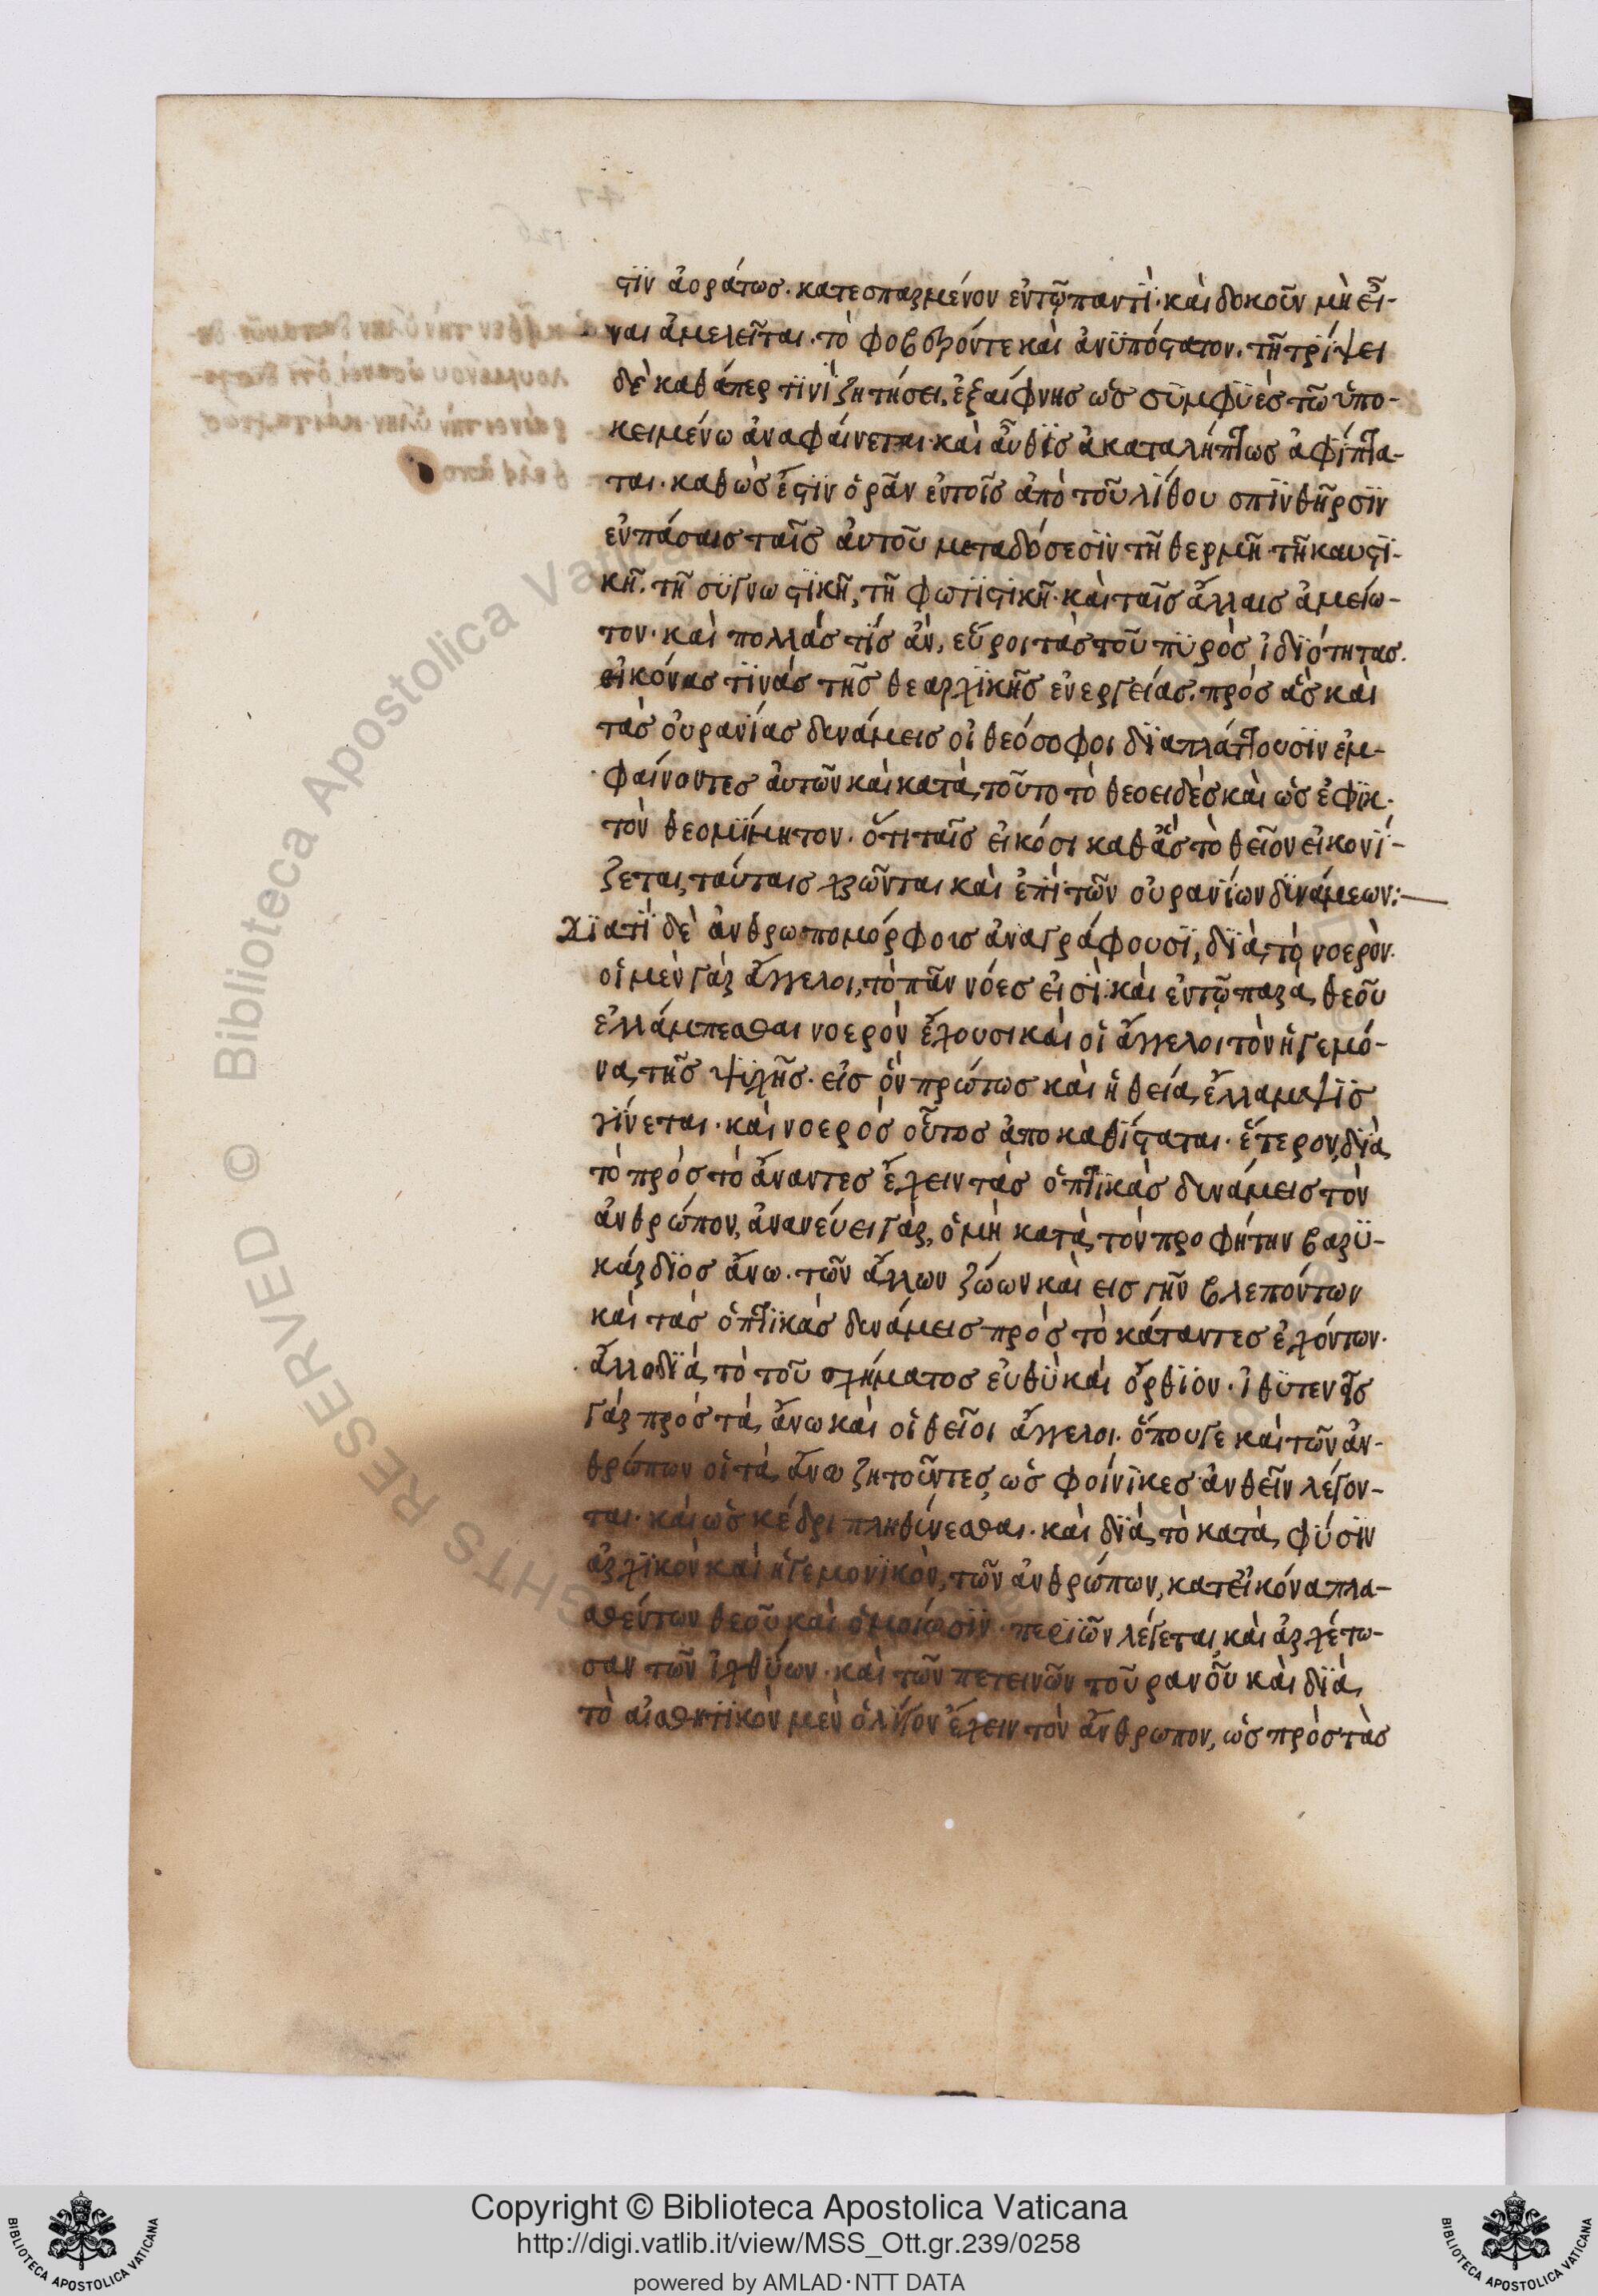 στϊν ἀοράτως. κατεσπαρμένον ἐντῷπαντὶ. καὶ δοκοῦν μὴ εἶ-
ναι ἀμελεῖται. τὸ φοβερόντε καὶ ἀνϋπόστατον. τῆ τρίψει
δὲ καθάπερ τϊνὶ ζητήσει. ἐξαίφνης ὡς σϋμφϋὲς τῶ ὑπο-
κειμένω ἀναφαίνεται. καὶ αὖθϊς ἀκαταλήπτως ἀφίπτα-
ται. καθὼς ἔστϊν ὁρᾶν ἐντοῖς ἀπὸ τοῦ λίθου σπϊνθῆρσϊν
ἐνπάσαις ταῖς ἀυτοῦ μεταδόσεσϊν τῆ θερμῆ τῆ καυστϊ-
κῆ. τῆ συγνωστϊκῆ, τῆ φωτϊστϊκῆ. καὶ ταῖς ἄλλαις ἀμείω-
τον. καὶ πολλὰς τὶς ἀν, εὕροι τὰς τοῦ πϋρὸς ἰδϊότητας.
εἰκόνας τϊνὰς τῆς θεαρχϊκῆς ἐνεργείας. πρὸς ἃς καὶ
τὰς οὐρανίας δυνάμεις οἱ θεόσοφοι δϊαπλάττουσϊν ἐμ-
φαίνοντες ἀυτῶν καὶ κατὰ τοῦτο τὸ θεοειδὲς καὶ ὡς ἐφϊκ-
τὸν θεομϊμητον. ὅτι ταῖς εἰκόσι καθ' ἃς τὸ θεῖον εἰκονί-
ζεται, ταύταις χρῶνται καὶ ἐπὶ τῶν οὐρανίων δυνάμεων:
Διατί δὲ ἀνθρωπομόρφοις ἀναγράφουσϊ, δϊὰ τὸ νοερὸν.
οἱ μὲν γὰρ ἄγγελοι, τὸ πᾶν νόες εἰσὶ. καὶ ἐντῷ παρὰ θεοῦ
ἐλλάμπεσθαι νοερὸν ἔχουσι καὶ οἱ ἄγγελοι τὸν ἡγεμό-
να τῆς ψϋχῆς. εἰς ὃν πρώτως καὶ ἡ θεία ἔλλαμψϊς
γίνεται. καὶ νοερὸς οὗτος ἀποκαθίσταται. ἕτερον, δϊὰ
τὸ πρὸς τὸ ἄναντες ἔχειν τὰς ὀπτϊκὰς δυνάμεις τὸν
ἀνθρώπον, ἀνανεύει γὰρ, ὁ μὴ κατὰ τὸν προφήτην βαρϋ-
κάρδϊος ἄνω. τῶν ἄλλων ζώων καὶ εἰς γῆν βλεπόντων
καὶ τὰς ὀπτϊκὰς δυνάμεις πρὸς τὸ κάταντες ἐχόντων.
ἄλλο δϊὰ τὸ τοῦ σχήματος εὐθϋ καὶ ὄρθϊον. ἰθϋτενεῖς
γὰρ πρὸς τὰ ἄνω καὶ οἱ θεῖοι ἄγγελοι. ὅπουγε καὶ τῶν ἀν-
θρώπων οἱ τὰ ἄνω ζητοῦντες, ὡς φοίνϊκες ἀνθεῖν λέγον-
ται. καὶ ὡς κέδρι πληθύνεσθαι. καὶ δϊὰ τὸ κατὰ φύσϊν
ἀρχϊκὸν καὶ ἡγεμονϊκὸν, τῶν ἀνθρώπων, κατεἰκόνα πλα-
σθέντων θεοῦ καὶ ὁμοίωσϊν. περὶὧν λέγεται καὶ ἀρχέτω-
σαν τῶν ἰχθύων. καὶ τῶν πετεινῶν τοῦρανοῦ καὶ δϊὰ
τὸ αἰσθητϊκὸν μὲν ὀλίγον ἔχειν τὸν ἄνθρωπον, ὡς πρὸς τὰς
Copyright © Biblioteca Apostolica Vaticana
http://digi.vatlib.it/view/MSS_Ott.gr.239/0258
powered by AMLAD·NTT DATA